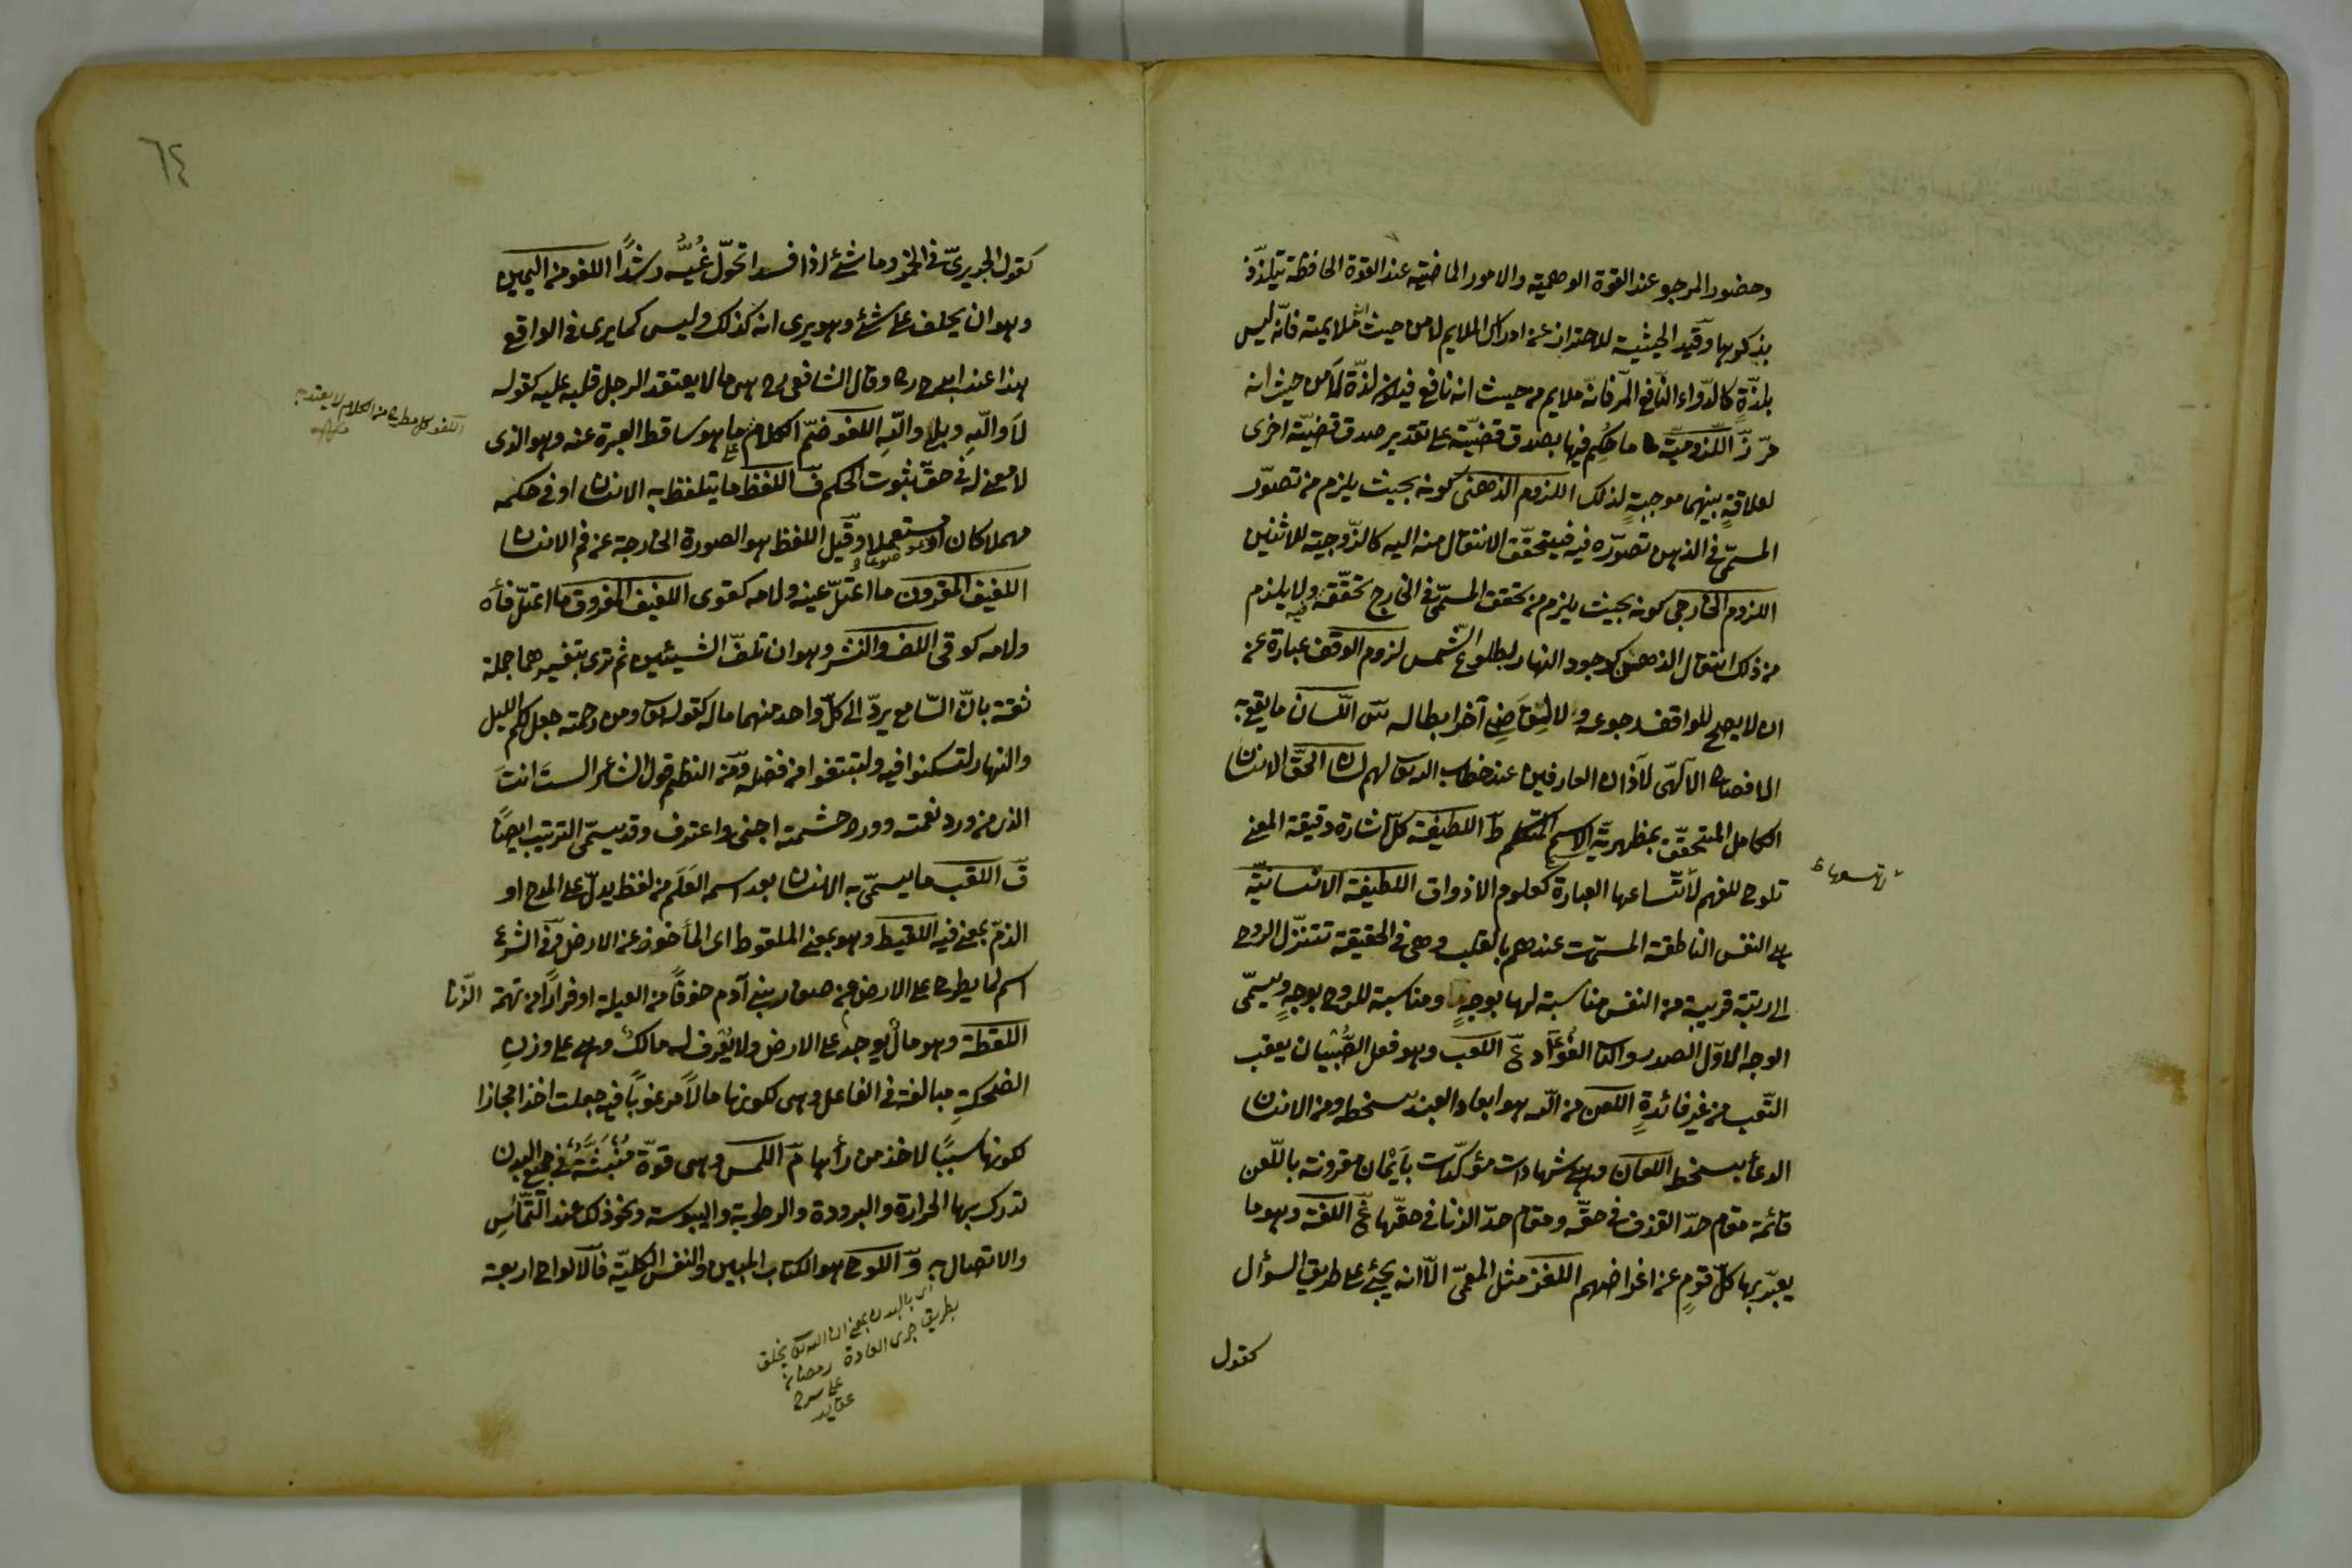 وحضور المرجو عند القوة الوهمية والامور الماضية عند القوة الحافظة تتلذّذ
بذكرها وقيد الحيثية للاحتراز عن ادراك الملايم لا من حيث ملايمته فانّه ليس
بلذّةٍ كالدّواء النّافع المرّ فانّه ملايم من حيث انه نافع فيكون لذّة لا من حيث انه
مرّ زّ اللّزوميّة ما حُكِم فيها بصدق قضيّة على تقدير صدق قضيّة اخرى
لعلاقةٍ بينهما موجبةٍ لذلك اللزوم الذهنى كونه بحيث يلزم من تصوّر
المسمّى فى الذهن تصوّره فيه فيتحقّق الانتقال منه اليه كالزّوجية للاثنين
اللزوم الخارجى كونه بحيث يلزم من تحقق المسمّى فى الخارج تحقّقه فيه ولا يلزم
من ذلك انتقال الذهن كوجود النهار لطلوع الشّمس لزوم الوقف عبارة عن
ان لا يصح للواقف رجوعه ولا لِقَاضٍ آخر ابطاله سّ اللّسان ما يقع به
الافصاح الآلهىّ لآذان العارفين عند خطابه تعالى لهم لسان الحقّ الانسان
الكامل المتحقّق بمظهريّة الاسم المتكلم طّ اللطيفة كلّ اشارة دقيقة المعنى
تلوح للفهم لا تسعها العبارة كعلوم الاذواق اللطيفة الانسانيّة
هى النفس الناطقة المسمّات عندهم بالقلب وهى فى الحقيقة تنزّل الروح
الى رتبة قريبة من النفس مناسبة لها بوجهٍ ومناسبة للروح بوجهٍ ويسمّى
الوجه الاوّل الصدر والثا الفُؤَاد عّ اللعب وهو فعل الصِّبْيان يعقب
التّعب من غير فائدةٍ اللعن من اللّه هو ابعاد العبد بسخطه ومن الانسان
الدعأ بسخط اللعان وهى شهادات مؤكّدات بأَيْمان مقرونة باللّعن
قائمة مقام حدّ القذف فى حقّه ومقام حدّ الزنا فى حقّها غّ اللغة وهو ما
يعبّر بها كلّ قومٍ عن اغراضهم اللغز مثل المعمّى الّا انه يجئ على طريق السؤال
كقول
٦٤
كقول الحريرىّ فى الخمر وما شئ اذا فسدا تحوّل غُيُّه رشدًا اللغو من اليمين
وهو ان يحلف على شئ وهو يرى انه كذلك وليس كما يرى فى الواقع
هذا عند ابى ح رح وقال الشافعى رح هى ما لا يعتقد الرجل قلبه عليه كقوله
لَا واللّهِ وبلى واللّهِ اللغو ضمّ الكلام ما هو ساقط العبرة عنه وهو الذى
لا معنى له فى حقّ ثبوت الحكم فّ اللفظ ما يتلفظ به الانسان او فى حكمه
مهملا كان او مستعملا وقيل اللفظ هو الصورة الخارجة عن فم الانسان
اللفيف المقرون ما اعتلّ عينه ولامه كقوى اللفيف المفروق ما اعتلّ فأه
ولامه كوقى اللف والنشر وهو ان تلفّ الشيئين ثم ترى بتفسيرهما جملة
ثقة بانّ السّامع يردّ الى كلّ واحد منهما ماله كقوله تعالى ومن رحمته جعل لكم الليل
والنهار لتسكنوا فيه ولتبتغوا من فضله ومن النظم قول الشاعر الستَ انتَ
الذى من ورد نعمته وورد حشمته اجنى واعترف وقد يسمّى الترتيب ايضًا
قّ اللقب ما يسمّى به الانسان بعد اسمه العَلَم من لفظ يدلّ على المدح او
الذمّ بمعنى فيه اللقيط وهو بمعنى الملقوط اى المأخوذ عن الارض وفى الشرع
اسم لما يطرح على الارض من صغار بنى آدم خوفًا من العيلة او فرارًا من تهمة الزّنا
اللقطة وهو مال يوجد على الارض ولا يُعْرف له مالك وهى على وزن
الضحكةِ مبالغة فى الفاعل وهى لكونها مالًا مرغوبًا فيه جعلت اخذا مجازا
لكونها سببًا لاخذ من رأها مّ اللمس وهى قوّة مُنْبَثَّةٌ فى جميع البدن
تدرك بها الحرارة والبرودة والرطوبة واليبوسة ونحو ذلك عند التّماسِّ
والاتصال به وّ اللوح هو الكتاب المبين والنفس الكليّة فالالواح اربعة
اللغو كل مطرح من الكلام لا يعتد به
بطريق جرى العادة رمضان
على شرح
عقايد